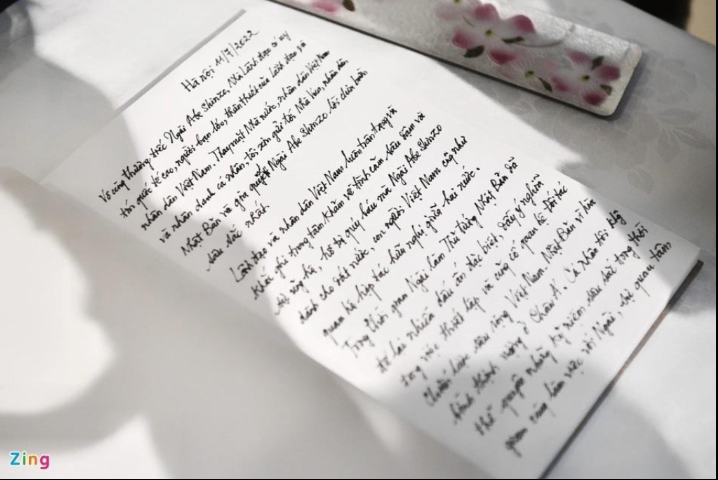 Hà nội 11/7/2022
Vô cùng thương tiếc Ngài Abe Shinzo, Nhà Lãnh đạo có uy
tín quốc tế cao, người bạn lớn, thân thiết của Lãnh đạo và
nhân dân Việt Nam. Thay mặt Nhà nước, nhân dân Việt Nam
và nhân danh cá nhân, tôi xin gửi tới Nhà Vua, nhân dân
Nhật Bản và gia quyến Ngài Abe Shinzo lời chia buồn
sâu sắc nhất.
Lãnh đạo và nhân dân Việt Nam luôn trân trọng và
khắc ghi trong tâm khảm về tình cảm sâu đậm và
sự ủng hộ, hỗ trợ quý báu mà Ngài Abe Shinzo
dành cho đất nước, con người Việt Nam cũng như
quan hệ hợp tác hữu nghị giữa hai nước.
Trong thời gian Ngài làm Thủ tướng Nhật Bản đã
để lại nhiều dấu ấn đặc biệt, đầy ý nghĩa
trong việc thiết lập và củng cố quan hệ đối tác
chiến lược sâu rộng Việt Nam - Nhật Bản vì hòa
bình thịnh vượng ở Châu Á. Cá nhân tôi không
thể quên những kỷ niệm sâu sắc trong thời
gian cùng làm việc với Ngài, sự quan tâm
Zing